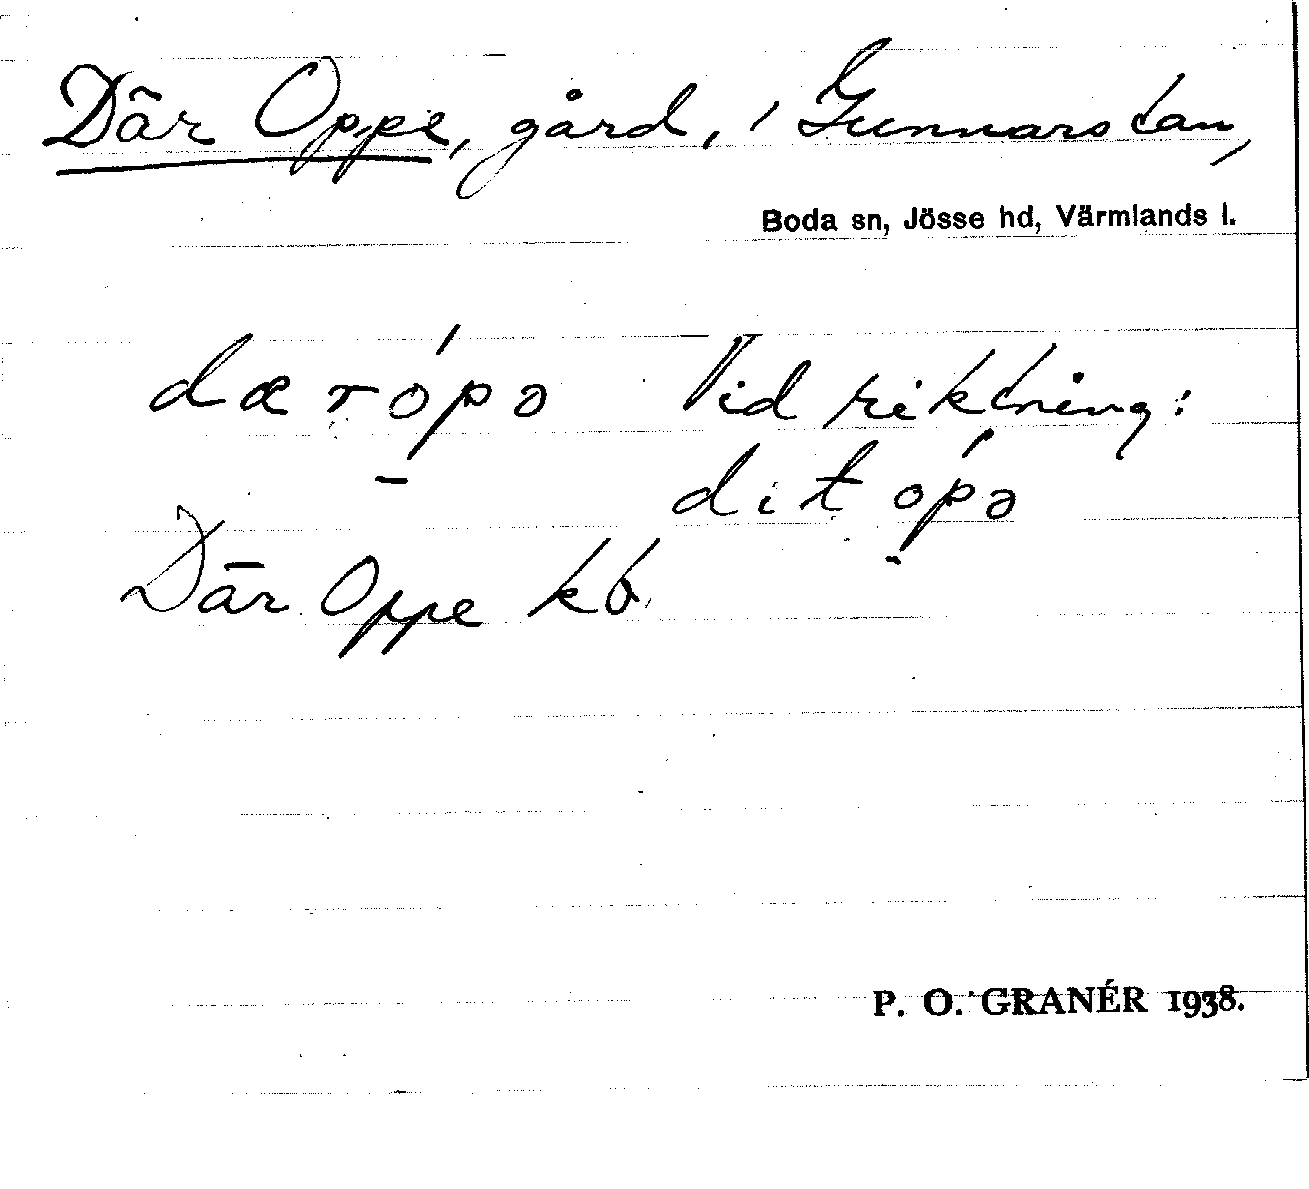 Där Oppe, gård, i Gunnarstan,
Boda sn, Jösse hd, Värmlands l.
dær ópə Vid riktning:
dit ópə
Där Oppe kb.
P. O. GRANÉR 1938.